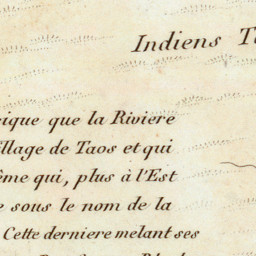 Indiens T
que la Riviere
illage de Taos et qui
ême qui, plus à l'Est
sous le nom de la
Cette derniere melant ses